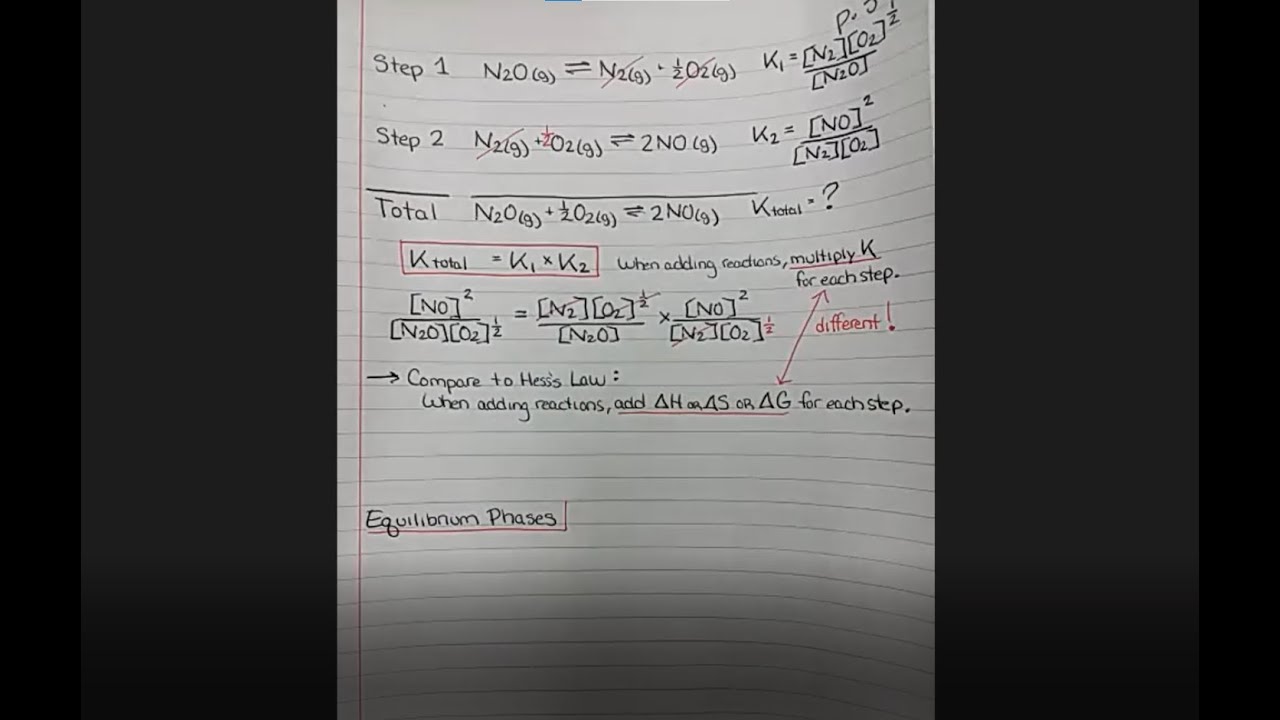 p. 5
Step 1 N2O(g) ⇌ N2(g) + 1/2 O2(g) K1 = [N2][O2]^1/2 / [N2O]
Step 2 N2(g) + 1/2 O2(g) ⇌ 2NO(g) K2 = [NO]^2 / [N2][O2]
Total N2O(g) + 1/2 O2(g) ⇌ 2NO(g) Ktotal = ?
Ktotal = K1 × K2 When adding reactions, multiply K
for each step.
[NO]^2 / [N2O][O2]^1/2 = [N2][O2]^1/2 / [N2O] × [NO]^2 / [N2][O2]^1/2 different!
→ Compare to Hess's Law:
When adding reactions, add ΔH OR ΔS OR ΔG for each step.
Equilibrium Phases